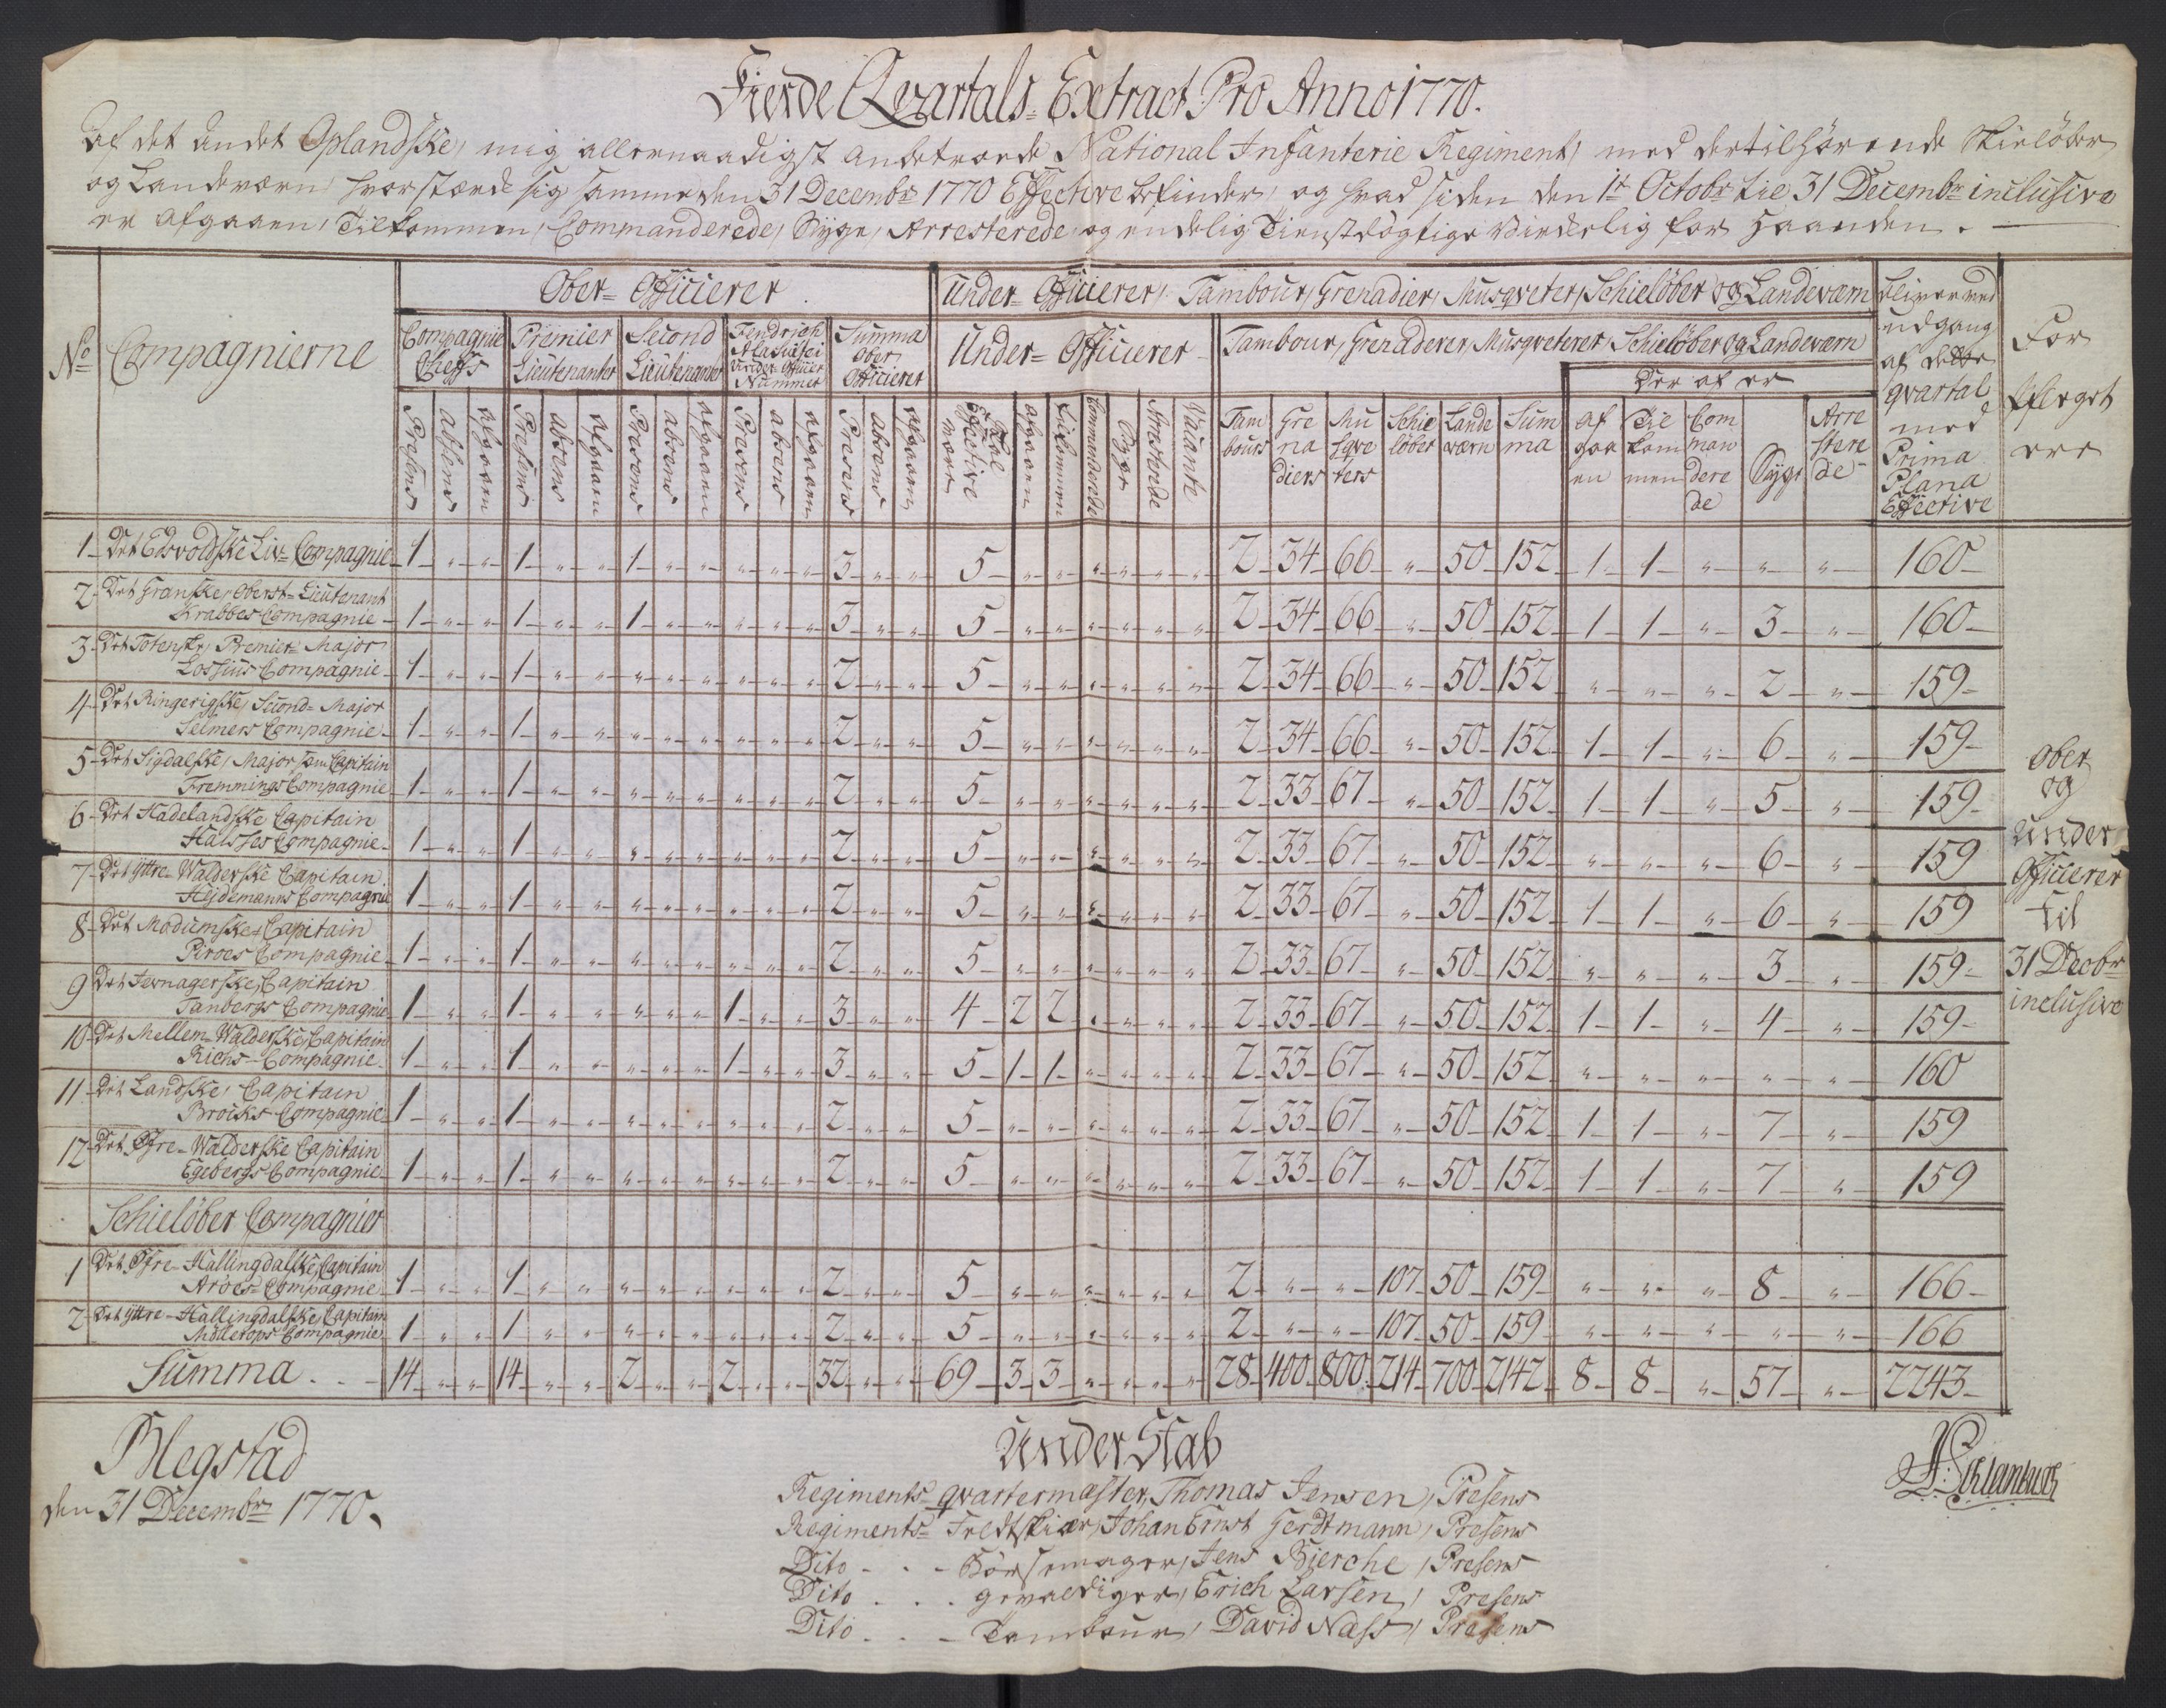 Fierde Qvartals-Extract Pro Anno 1770.
Af det Andet Oplandske, mig allernaadigst anbetroede National Infanterie Regiment, med dertilhørende Skieløber
og Landeværn, hvorstærk sig samme den 31 Decembr 1770 Effective befinder, og hvad siden den 1st Octobr til 31 Decembr inclusive
er afgaaen, Tilkommen, Commanderede, Syge, Arresterede og endelig Tienstdögtige Virkelig for Haanden.
No Compagnierne
Ober-Officierer
Under-Officierer, Tambour, Grenadier, Musqveter, Schielöber og Landeværn
Compagnie Cheffs
Premier Lieutenanter
Second Lieutenanter
Fendrich A la Suite i Under-Officier Nummer
Summa Ober Officierer
Under-Officierer
Tambour, Grenaderer, Musqveterer, Schielöber og Landeværn
Der af er
Presens Absens Afgaaen Presens Absens Afgaaen Presens Absens Afgaaen Presens Absens Afgaaen Presens Absens Afgaaen
Effective Afgaaen Tilkommen Commanderede Syge Arresterede Vacante
Tambours Grenadiers Musqveters Schielöber Landeværn Summa
afgaaen Tilkommen Commanderede Syge Arresterede
bliver ved udgang af dette qvartal med Prima Plana Effective
For pfleget ere
1 Det Edsvoldske Liv-Compagnie 1 " " 1 " " 1 " " " " " 3 " " 5 " " " " " " 2 34 66 " 50 152 1 1 " " " 160
2 Det Granske, Oberst-Lieutenant
Krabbes Compagnie 1 " " 1 " " 1 " " " " " 3 " " 5 " " " " " " 2 34 66 " 50 152 1 1 " 3 " 160
3 Det Totenske, Premier-Major
Lossius Compagnie 1 " " 1 " " " " " " " " 2 " " 5 " " " " " " 2 34 66 " 50 152 " " " 2 " 159
4 Det Ringerigske, Second-Major
Selmers Compagnie 1 " " 1 " " " " " " " " 2 " " 5 " " " " " " 2 34 66 " 50 152 1 1 " 6 " 159
5 Det Sigdalske, Major som Capitain
Fremmings Compagnie 1 " " 1 " " " " " " " " 2 " " 5 " " " " " " 2 33 67 " 50 152 1 1 " 5 " 159
6 Det Hadelandske Capitain
Halsses Compagnie 1 " " 1 " " " " " " " " 2 " " 5 " " " " " " 2 33 67 " 50 152 " " " 6 " 159
7 Det Yttre-Walderske Capitain
Hejdemanns Compagnie 1 " " 1 " " " " " " " " 2 " " 5 " " " " " " 2 33 67 " 50 152 1 1 " 6 " 159
8 Det Modumske Capitain
Piroes Compagnie 1 " " 1 " " " " " " " " 2 " " 5 " " " " " " 2 33 67 " 50 152 " " " 3 " 159
9 Det Jevnagerske, Capitain
Tanbergs Compagnie 1 " " 1 " " " " " 1 " " 3 " " 4 2 2 " " " " 2 33 67 " 50 152 1 1 " 4 " 159
10 Det Mellem-Walderske, Capitain
Richs-Compagnie 1 " " 1 " " " " " 1 " " 3 " " 5 1 1 " " " " 2 33 67 " 50 152 " " " " " 160
11 Det Landske, Capitain
Brocks Compagnie 1 " " 1 " " " " " " " " 2 " " 5 " " " " " " 2 33 67 " 50 152 1 1 " 7 " 159
12 Det Øfre-Walderske Capitain
Egebergs Compagnie 1 " " 1 " " " " " " " " 2 " " 5 " " " " " " 2 33 67 " 50 152 1 1 " 7 " 159
Ober
og
Under
Officierer
til
31 Decbr
inclusive
Schielöber Compagnier
1 Det Øfre-Hallingdalske, Capitain
Aröes-Compagnie 1 " " 1 " " " " " " " " 2 " " 5 " " " " " " 2 " " 107 50 159 " " " 8 " 166
2 Det Yttre-Hallingdalske, Capitain
Möllerops Compagnie 1 " " 1 " " " " " " " " 2 " " 5 " " " " " " 2 " " 107 50 159 " " " " " 166
Summa 14 " " 14 " " 2 " " 2 " " 32 " " 69 3 3 " " " " 28 400 800 214 700 2142 8 8 " 57 " 2243
Blegstad
den 31 Decembr 1770.
Under Stab
Regiments-qvartermester, Thomas Jensen, Presens
Regiments-Feldtskiær, Johan Ernst Gerdtmann, Presens
Dito - - - Börsemager, Jens Bierche, Presens
Dito . . . gevaldiger, Erich Larsen, Presens
Dito . . - Tambour, David Nass, Presens